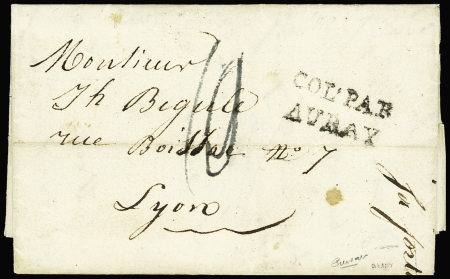 Monsieur
Jh Begule
rue Boissac No 7
Lyon
10
COL.PAR
AURAY